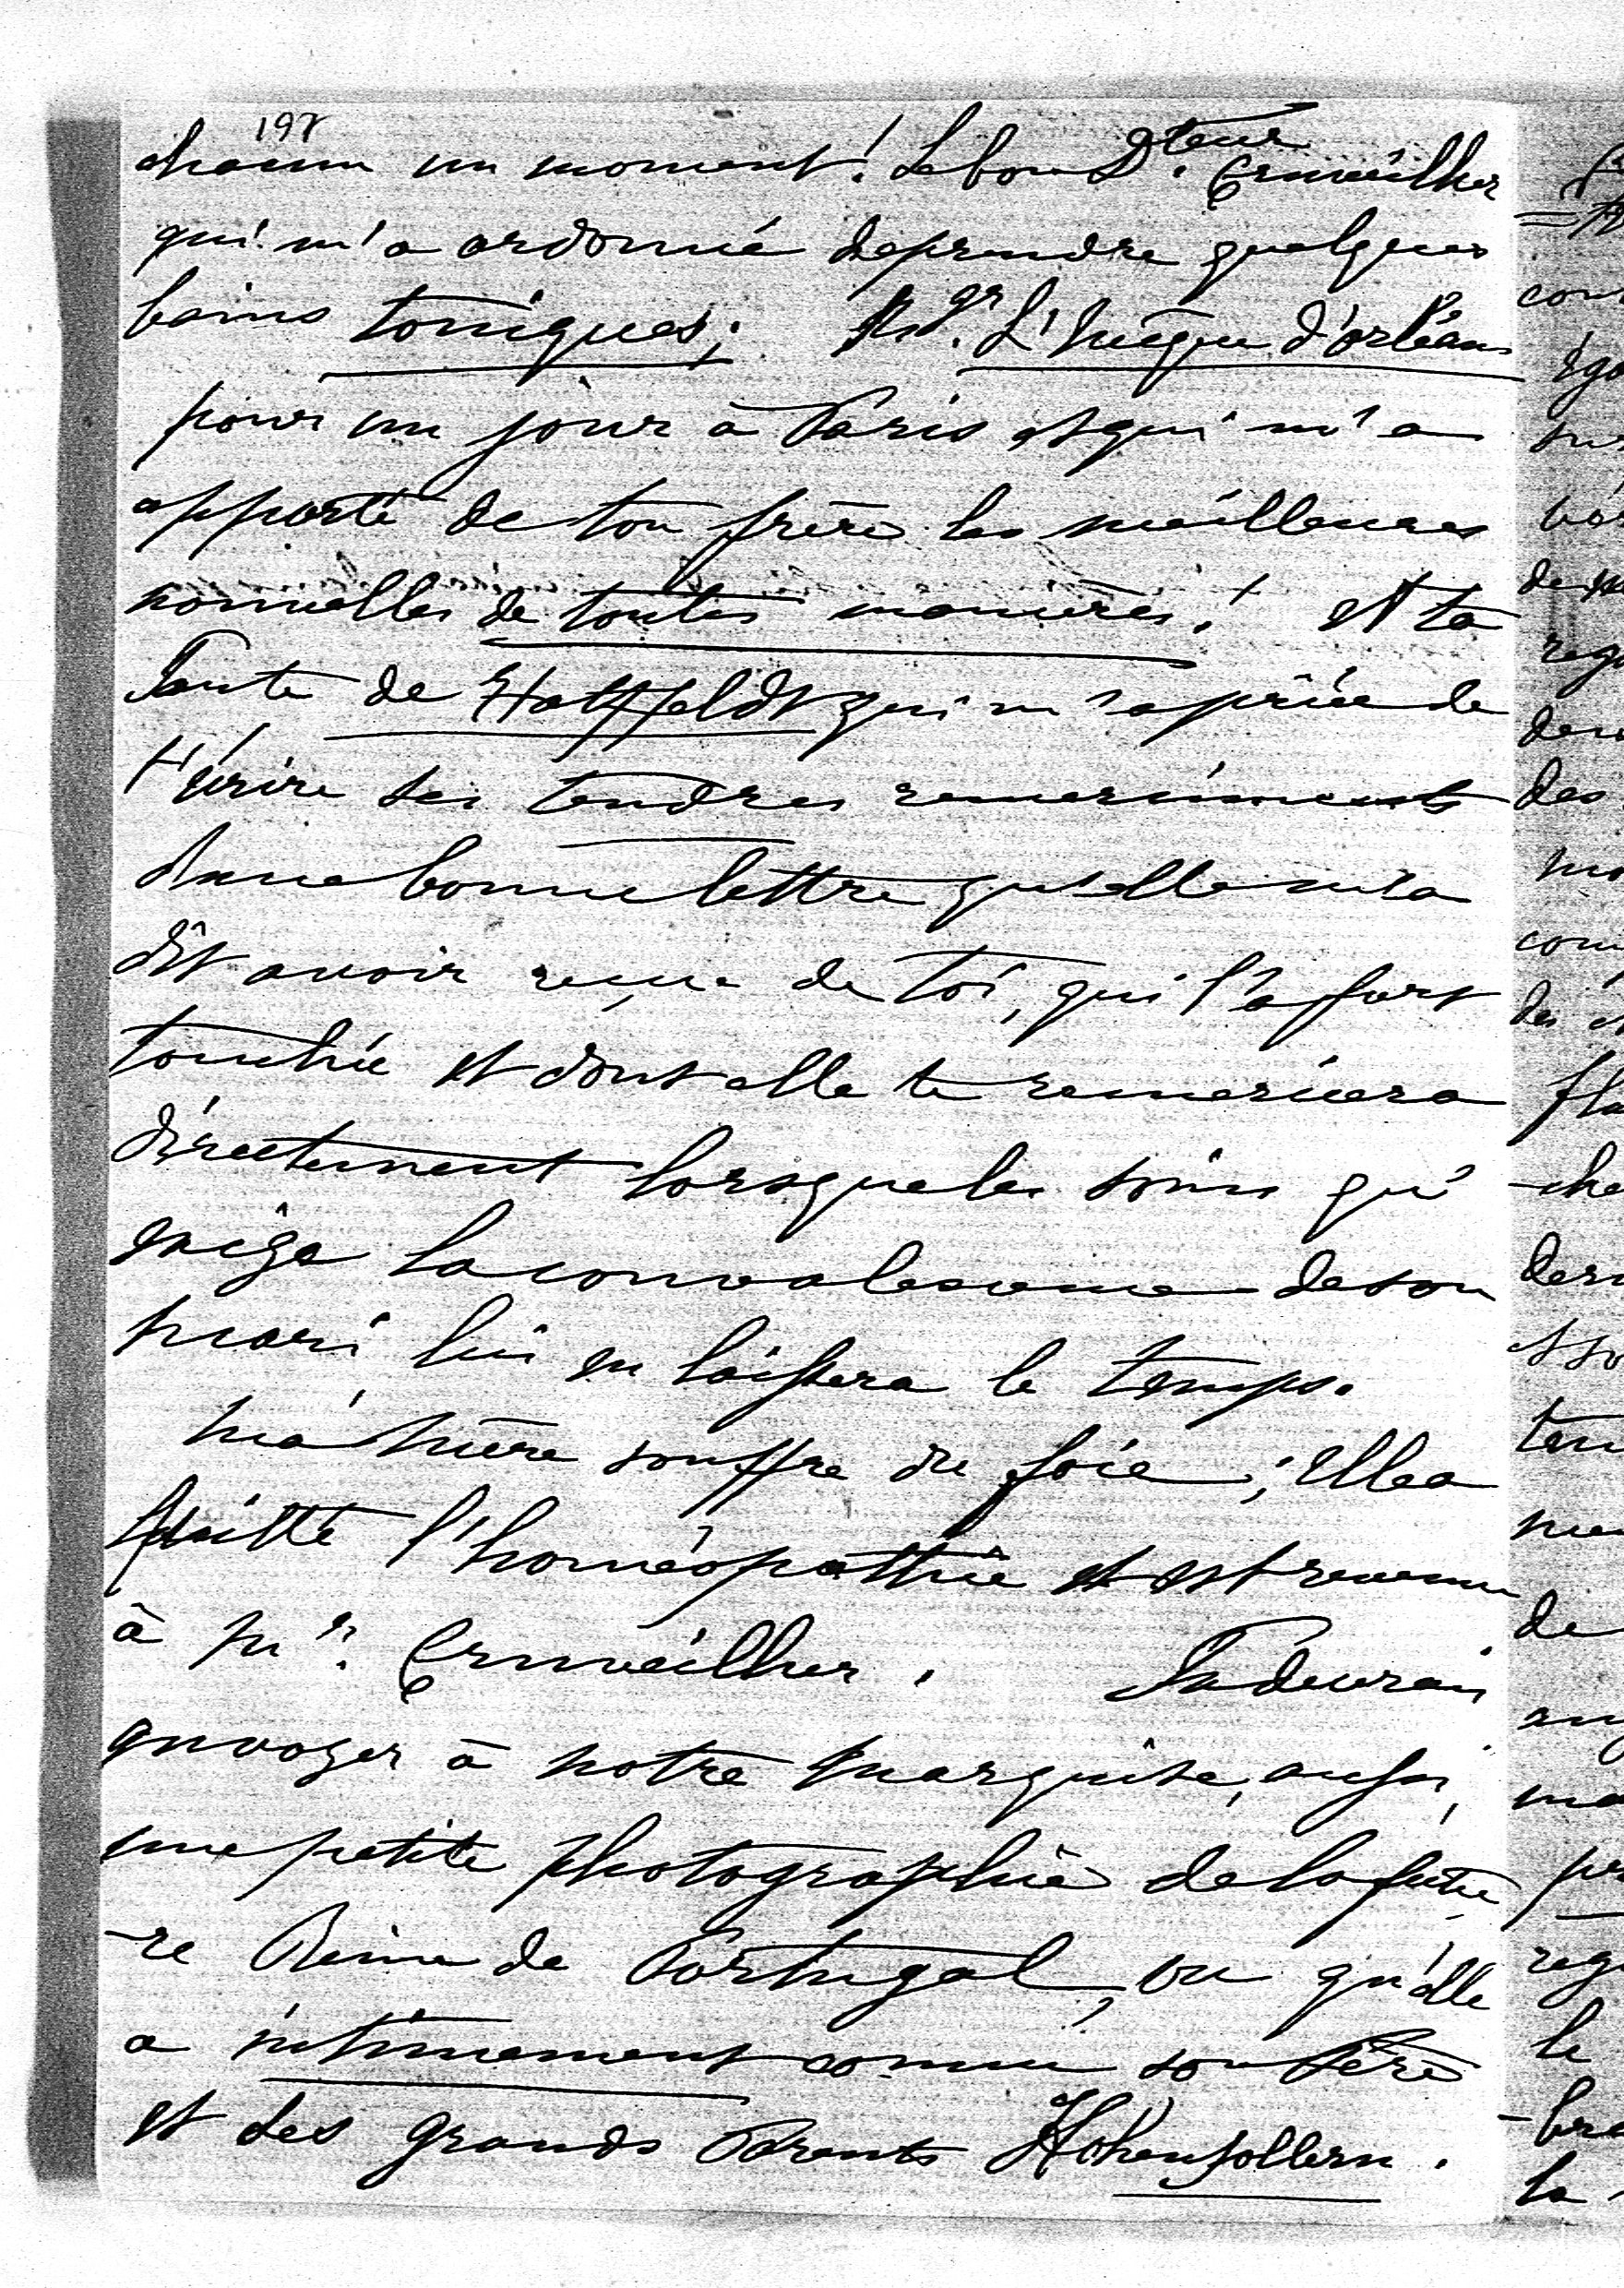 197
chacun un moment! Le bon Dteur. Cruveilher
qui m'a ordonné de prendre quelques
bains toniques; Mgr. L'Evêque d'orléans
pour un jour à Paris et qui m'a
apporté de ton frère les meilleures
nouvelles de toutes manières! et ta
Tante de Hatzfeldt qui m'a priée de
t'écrire ses tendres remerciments
d'une bonne lettre qu'elle m'a
dit avoir reçue de toi, qui l'a fort
touchée et dont elle te remerciera
directement lorsque les soins qu'
exige la convalescence de son
mari lui en laissera le temps.
Ma mère souffre du foie; elle a
quitté l'homéopathie et est revenue
à Mr. Cruveilher. Tu devrais
envoyer à notre Marquise, aussi,
une petite photographie de la futu
-re Reine de Portugal, vu qu'elle
a intimement connu son Père
et des grands Parents Hohenzollern.